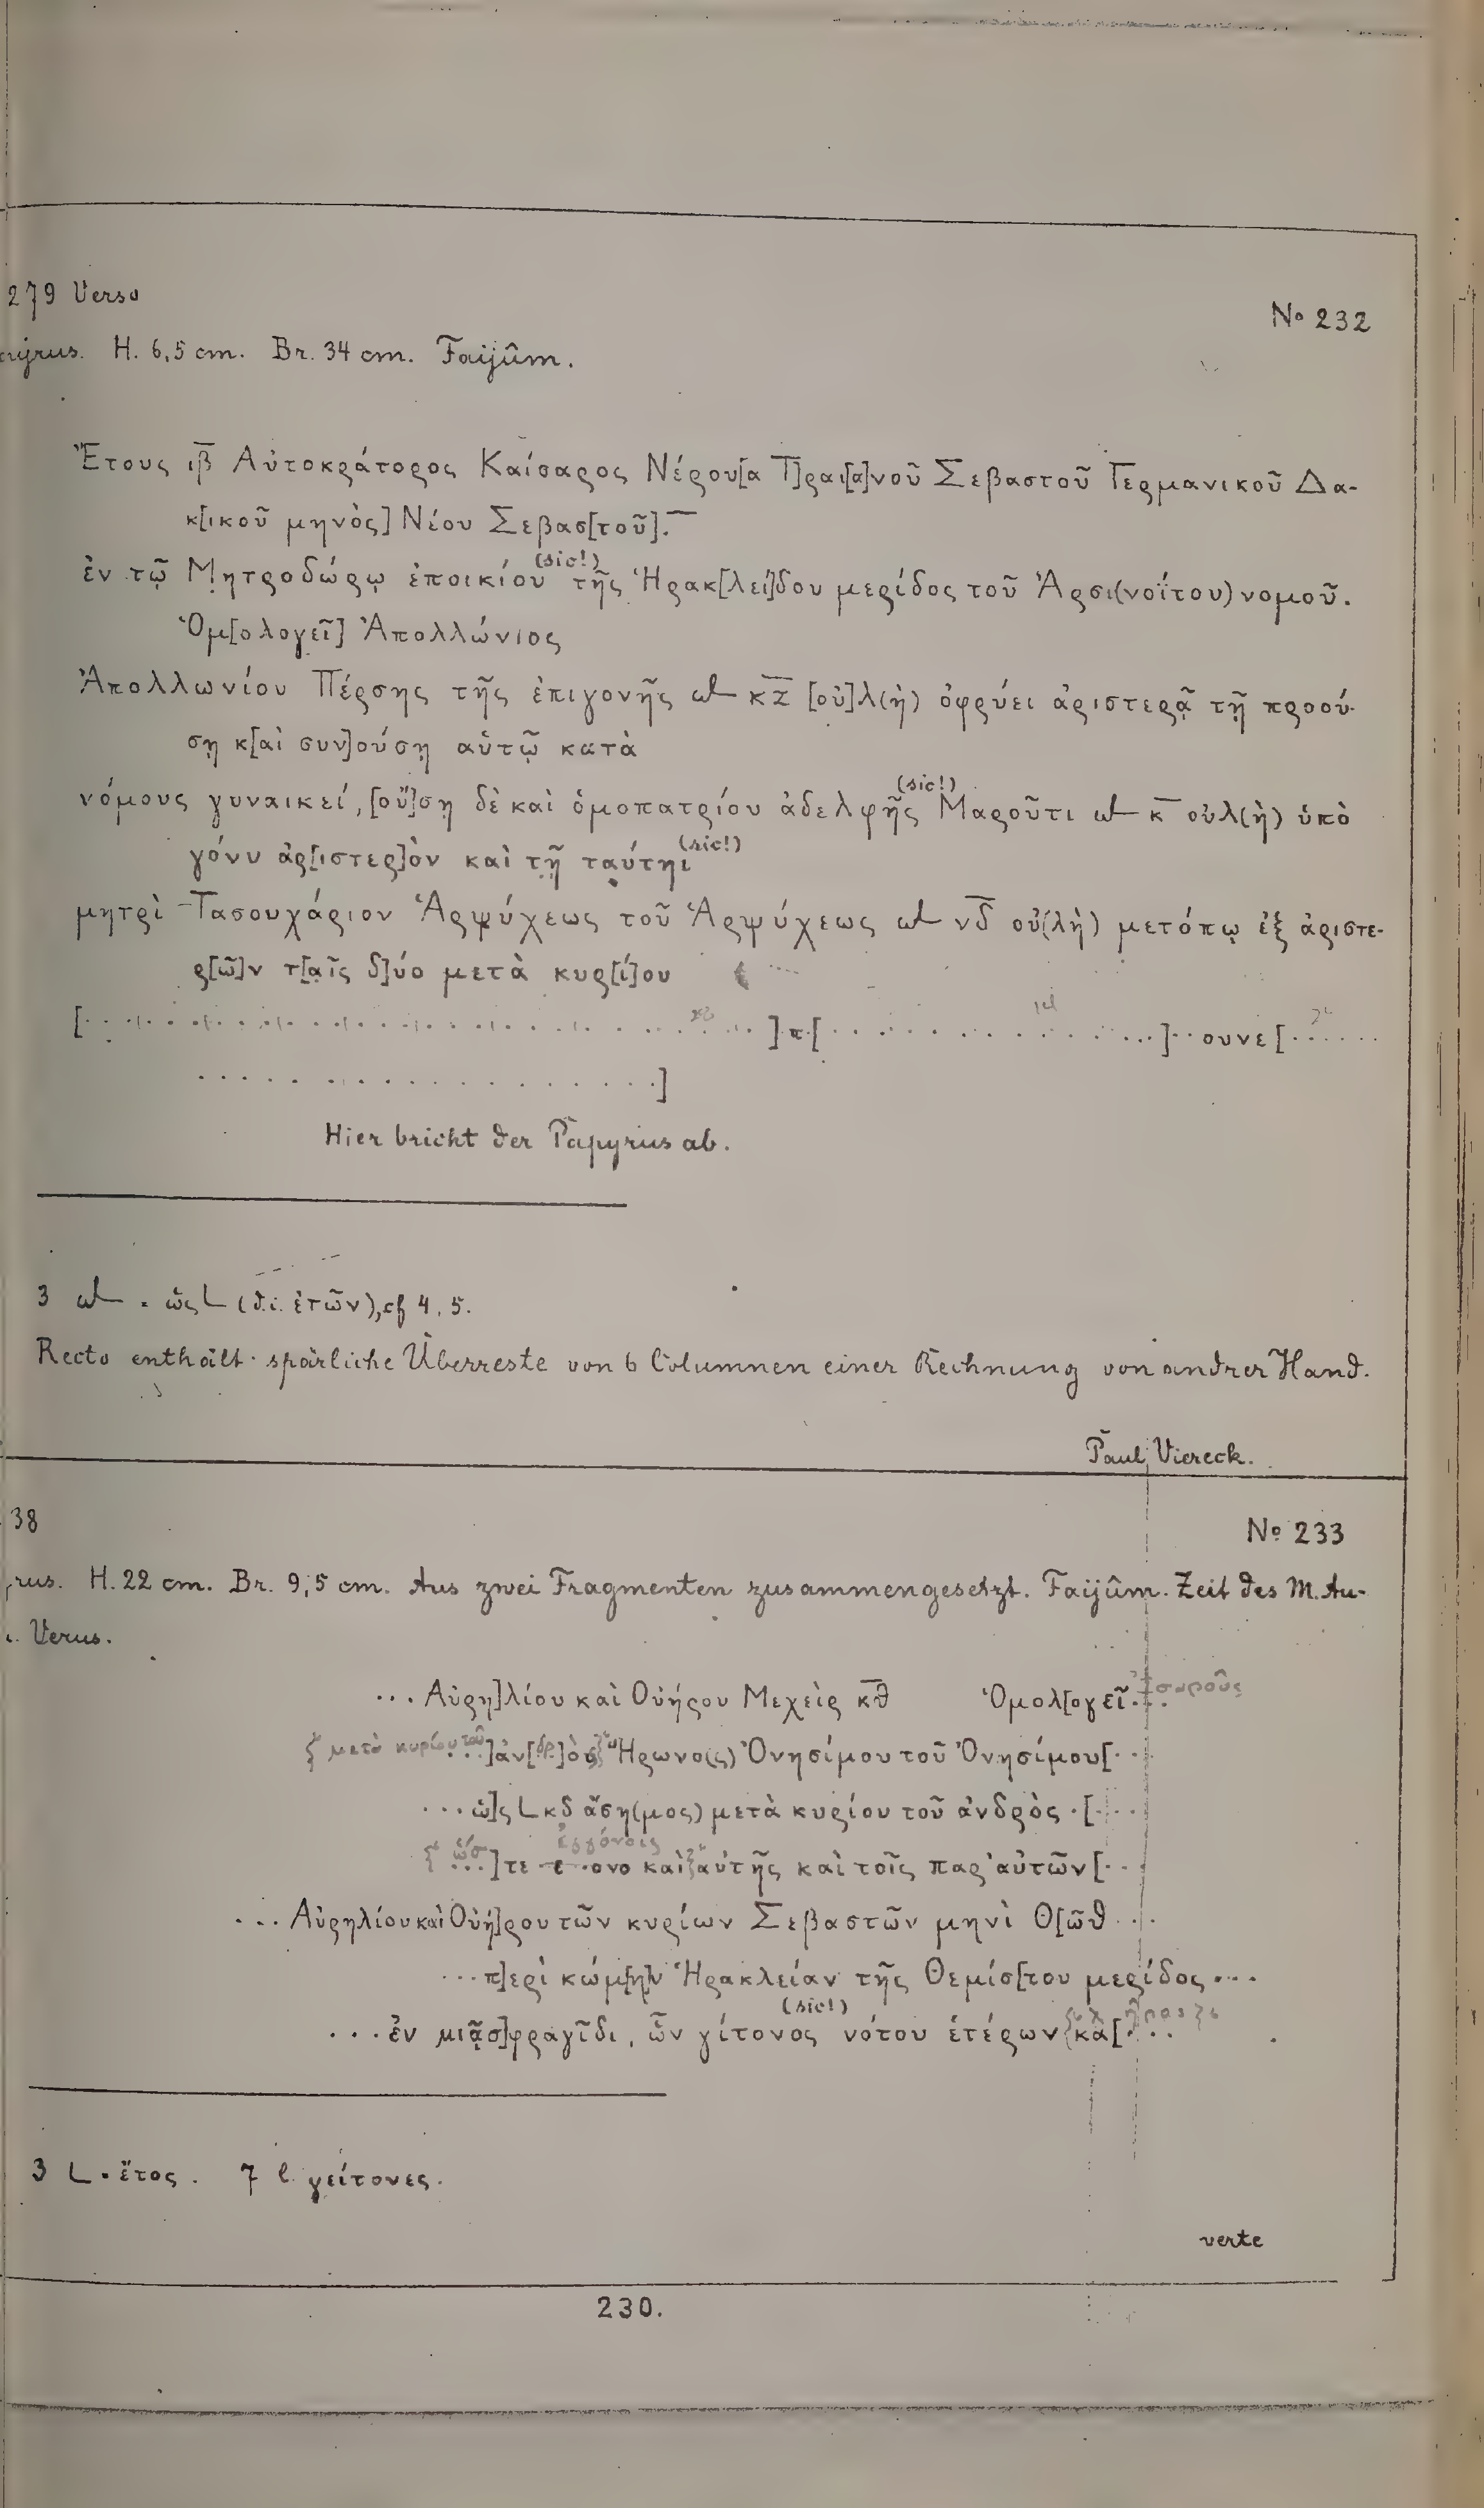 279 Verso
No 232
H. 6,5 cm. Br. 34 cm. Faijûm.
Ἔτους ιβ̅ Αὐτοκράτορος Καίσαρος Νέρου[α Τ]ραι[α]νοῦ Σεβαστοῦ Γερμανικοῦ Δα-
κ[ικοῦ μηνὸς] Νέου Σεβασ[τοῦ].
(sic!)
ἐν τῷ Μητροδώρῳ ἐποικίου τῆς Ἡρακ[λεί]δου μερίδος τοῦ Ἀρσι(νοΐτου) νομοῦ.
Ὁμ[ολογεῖ] Ἀπολλώνιος
Ἀπολλωνίου Πέρσης τῆς ἐπιγονῆς ω𐅹 κζ̅ [οὐ]λ(ὴ) ὀφρύει ἀριστερᾷ τῇ προού-
σῃ κ[αὶ συν]ούσῃ αὐτῷ κατὰ
(sic!)
νόμους γυναικεί, [οὔ]σῃ δὲ καὶ ὁμοπατρίου ἀδελφῆς Μαροῦτι ω𐅹 κ̅ οὐλ(ὴ) ὑπὸ
(sic!)
γόνυ ἀρ[ιστερ]ὸν καὶ τῇ ταύτηι
μητρὶ Τασουχάριον Ἁρψύχεως τοῦ Ἁρψύχεως ω𐅹 νδ̅ οὐ(λὴ) μετόπῳ ἐξ ἀριστε-
ρ[ῶ]ν τ[αῖς δ]ύο μετὰ κυρ[ί]ου
[. . . . . . . . . . . . . . . . . . . .]π[. . . . . . . . . . . .]··ουνε[. . . . . .
. . . . . . . . . . . . . . . .]
Hier bricht der Papyrus ab.
3 ω𐅹 = ὡς 𐅹 (d.i. ἐτῶν), cf 4. 5.
Recto enthält spärliche Überreste von 6 Columnen einer Rechnung von andrer Hand.
Paul Viereck.
38
No 233
H. 22 cm. Br. 9,5 cm. Aus zwei Fragmenten zusammengesetzt. Faijûm. Zeit des M. Au-
Verus.
... Αὐρη]λίου καὶ Οὐήρου Μεχεὶρ κθ̅ Ὁμολ[ογεῖ...
μετὰ κυρίου τοῦ ...]ἀν[δρ]ὸς Ἥρωνο(ς) Ὀνησίμου τοῦ Ὀνησίμου[...
... ὡ]ς 𐅹 κδ ἄση(μος) μετὰ κυρίου τοῦ ἀνδρὸς ·[...
ἐγγόνοις
ὥσ]τε ε··ονο καὶ αὐτῆς καὶ τοῖς παρ' αὐτῶν[...
... Αὐρηλίου καὶ Οὐή]ρου τῶν κυρίων Σεβαστῶν μηνὶ Θ[ῶθ ...
... π]ερὶ κώμ[η]ν Ἡρακλείαν τῆς Θεμίσ[του μερίδος ...
(sic!)
... ἐν μιᾷ σ]φραγῖδι, ὧν γίτονος νότου ἑτέρων κα[...
3 𐅹 = ἔτος. 7 l. γείτονες.
verte
230.